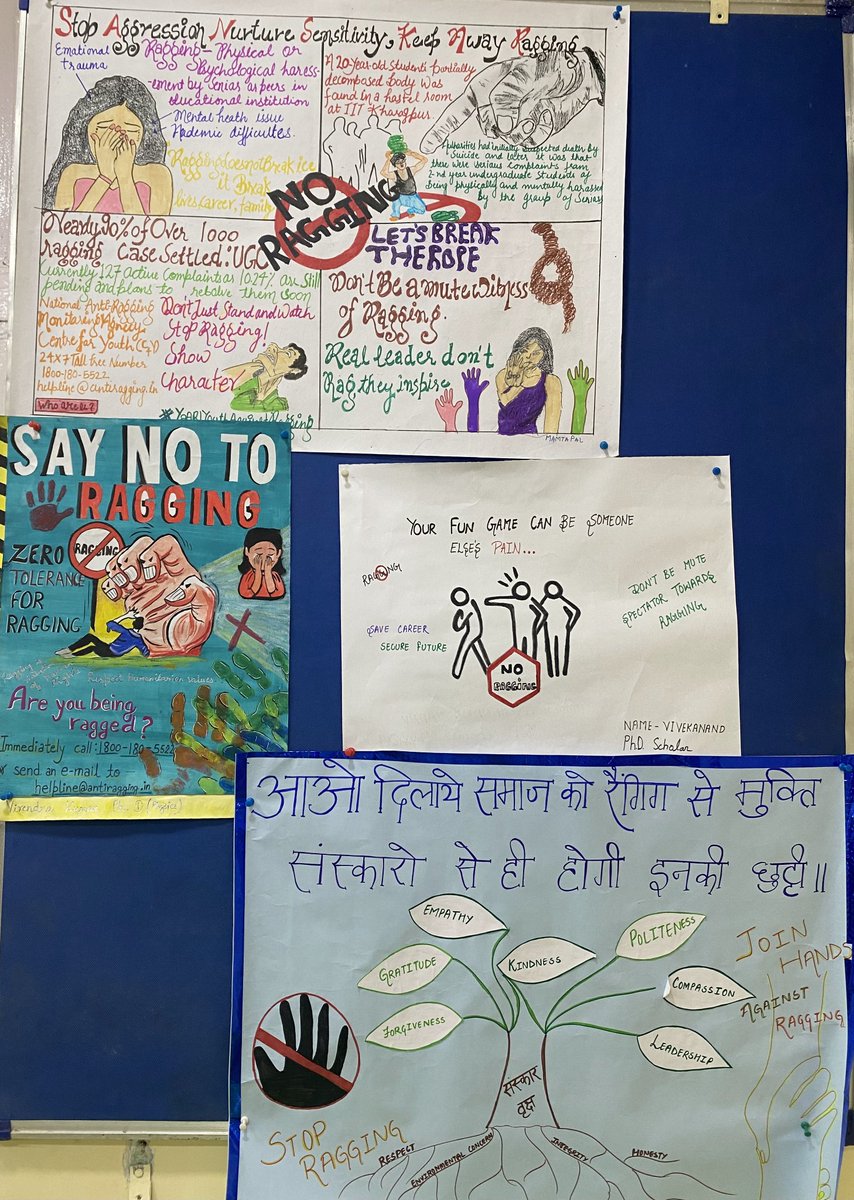 Stop Aggression Nurture Sensitivity, Keep Away Ragging
Emational
trauma
Ragging - Physical or
Psychological haress-
ement by senias ar peers in
educational institution
Mental heath issue
Academic difficultes.
Ragging does not Break ice
it Break
lives, career, family
A 20-year-old students Partially
decomposed body was
found in a hostel room
at IIT Kharagpur.
Authorities had initially suspected death by
Suicide and later it was that
there were serious complaints from
2-nd year undergraduate Students of
Being physically and mentally harassed
by the group of Senias
NO
RAGGING
Nearly 90% of Over 1000
ragging Case Settled: UGC
Currently 127 Active Complaints as 10.24% are still
pending and plans to resolve them soon
National Anti-Ragging
Monitaring Agency:
Centre for Youth (C4Y)
24X7 Tall free Number
1800-180-5522
helpline@antiragging.in
Who are u?
Don't Just Stand and Watch
Stop Ragging!
Show
Character
LET'S BREAK
THE ROPE
Don't Be a mute witness
of Ragging.
Real leader don't
Rag, they inspire
MAMTA PAL
SAY NO TO
RAGGING
RAGGING
ZERO
TOLERANCE
FOR
RAGGING
Respect humanitarian values
Are you being
ragged?
Immediately call: 1800-180-5522
send an e-mail to
helpline@antiragging.in
YOUR FUN GAME CAN BE SOMEONE
ELSE'S PAIN...
RAGGING
SAVE CAREER
SECURE FUTURE
DON'T BE MUTE
SPECTATOR TOWARDS
RAGGING
NO
RAGGING
NAME- VIVEKANAND
PhD. Scholar
आओ दिलाये समाज को रैगिग से मुक्ति
संस्कारो से ही होगी इनकी छुट्टी॥
EMPATHY
GRATITUDE
FORGIVENESS
KINDNESS
POLITENESS
COMPASSION
LEADERSHIP
JOIN
HANDS
AGAINST
RAGGING
संस्कार
वृक्ष
STOP
RAGGING
RESPECT
ENVIRONMENTAL CONCERN
INTEGRITY
HONESTY